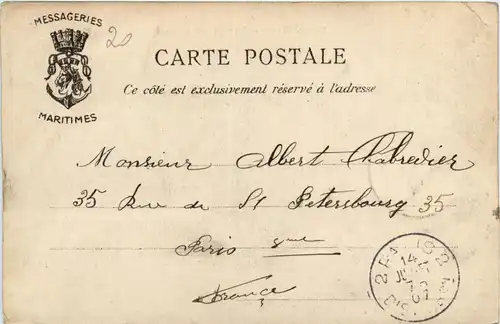 MESSAGERIES
MARITIMES
20
CARTE POSTALE
Ce côté est exclusivement réservé à l'adresse
Monsieur Albert Chabredier
35 Rue de St Petersbourg 35
Paris 8me
France
14
07